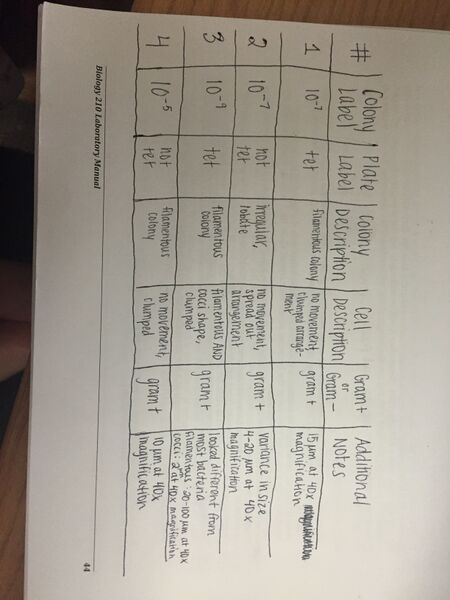 #
Colony
Label
Plate
Label
Colony
Description
Cell
Description
Gram+
or
Gram-
Additional
Notes
1
10⁻⁷
tet
filamentous colony
no movement
clumped arrange-
ment
gram +
15 µm at 40x
magnification
2
10⁻⁷
not
tet
irregular,
lobate
no movement,
spread out
arrangement
gram +
variance in size
4-20 µm at 40x
magnification
3
10⁻⁹
tet
filamentous
colony
filamentous AND
cocci shape,
clumped
gram +
looked different from
most bacteria
filamentous: 20-100 µm at 40x
cocci: 2 µm at 40x magnification
4
10⁻⁵
not
tet
filamentous
colony
no movement,
clumped
gram +
10 µm at 40x
magnification
Biology 210 Laboratory Manual
44